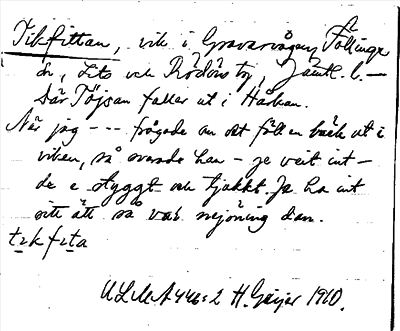 Tikfittan, vik i Gravarvågen, Föllinge
ån, Lits och Rödöns tg, Jämtl. l. —
där Töjsan faller ut i Hårkan.
När jag - - - frågade om det föll en bäck ut i
viken, så svarade han – je veit int –
de e styggt och tjukkt. Ja ha int
sitt ått så var nejöning dan.
tikfita
ULMA 446:2 H. Geijer 1910.